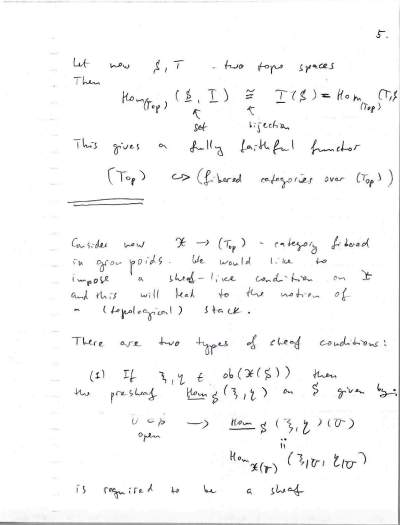 5.
Let now S, T - two topo spaces
Then
Hom_(Top) (S, T) ≅ T(S) = Hom_(Top) (T, S
↑ ↑
set bijection
This gives a fully faithful functor
(Top) ↪ (fibered categories over (Top))
Consider now X → (Top) - category fibered
in groupoids. We would like to
impose a sheaf-like condition on X
and this will lead to the notion of
a (topological) stack.
There are two types of sheaf conditions:
(1) If ξ, η ∈ ob(X(S)) then
the presheaf Hom_S (ξ, η) on S given by:
U ⊂ S → Hom_S (ξ, η)(U)
open
||
Hom_X(U) (ξ|U, η|U)
is required to be a sheaf